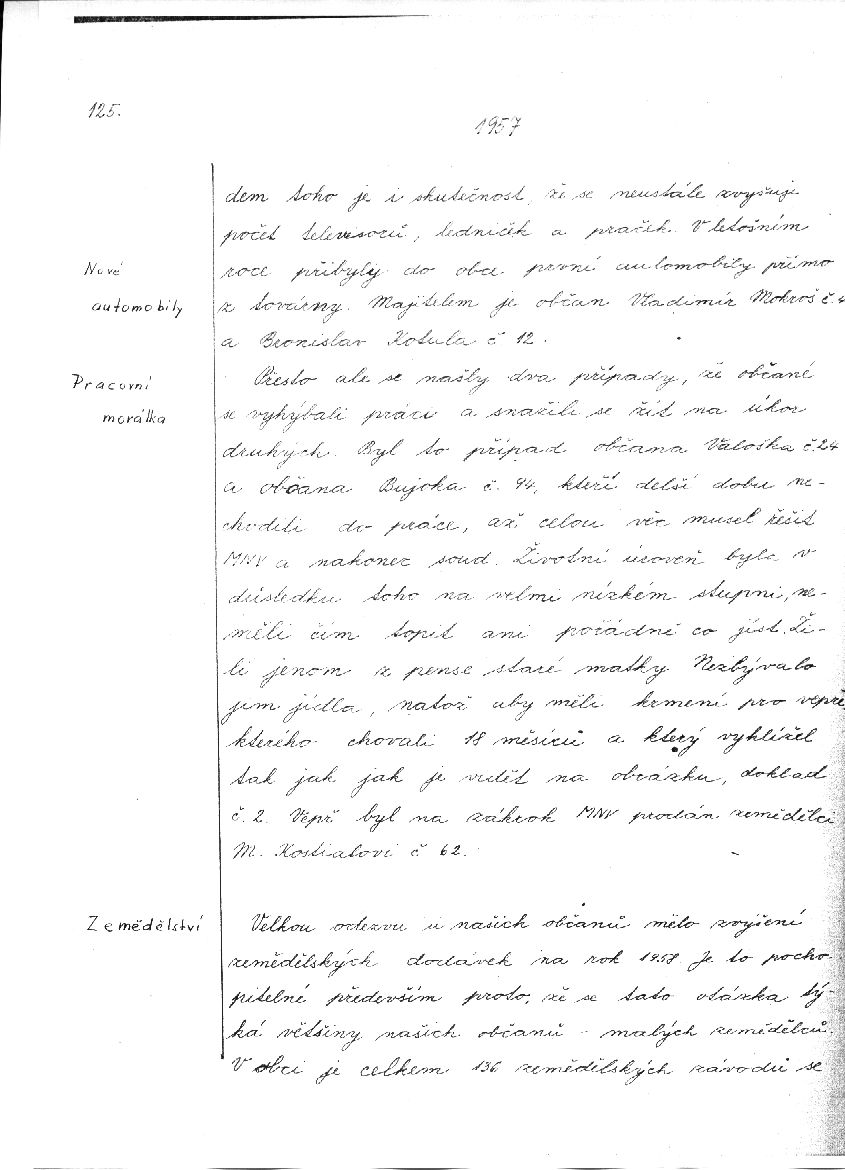 125.
1957
dem toho je i skutečnost, že se neustále zvyšuje
počet televesorů, ledniček a praček. V letošním
Nové
roce přibyly do obce první automobily přímo
automobily
z továrny. Majitelem je občan Vladimír Mokroš č.
a Bronislav Kotula č 12.
Pracovní
Přesto ale se našly dva případy, že občané
morálka
se vyhýbali práci a snažili se žít na úkor
druhých. Byl to případ občana Valoška č.24
a občana Bujoka č. 94, kteří delší dobu ne-
chodili do práce, až celou věc musel řešit
MNV a nakonec soud. Životní úroveň byla v
důsledku toho na velmi nízkém stupni, ne-
měli čím topit ani pořádně co jíst. Ži-
li jenom z pense staré matky. Nezbývalo
jim jídla, natož aby měli krmení pro vepře
kterého chovali 18 měsíců a který vyhlížel
tak jak jak je vidět na obrázku, doklad
č. 2. Vepř byl na zákrok MNV prodán zemědělci
M. Kostialovi č 62.
Zemědělství
Velkou odezvu u našich občanů mělo zvýšení
zemědělských dodávek na rok 1958 Je to pocho-
pitelné především proto, že se tato otázka tý-
ká většiny našich občanů - malých zemědělců.
V obci je celkem 136 zemědělských závodů se